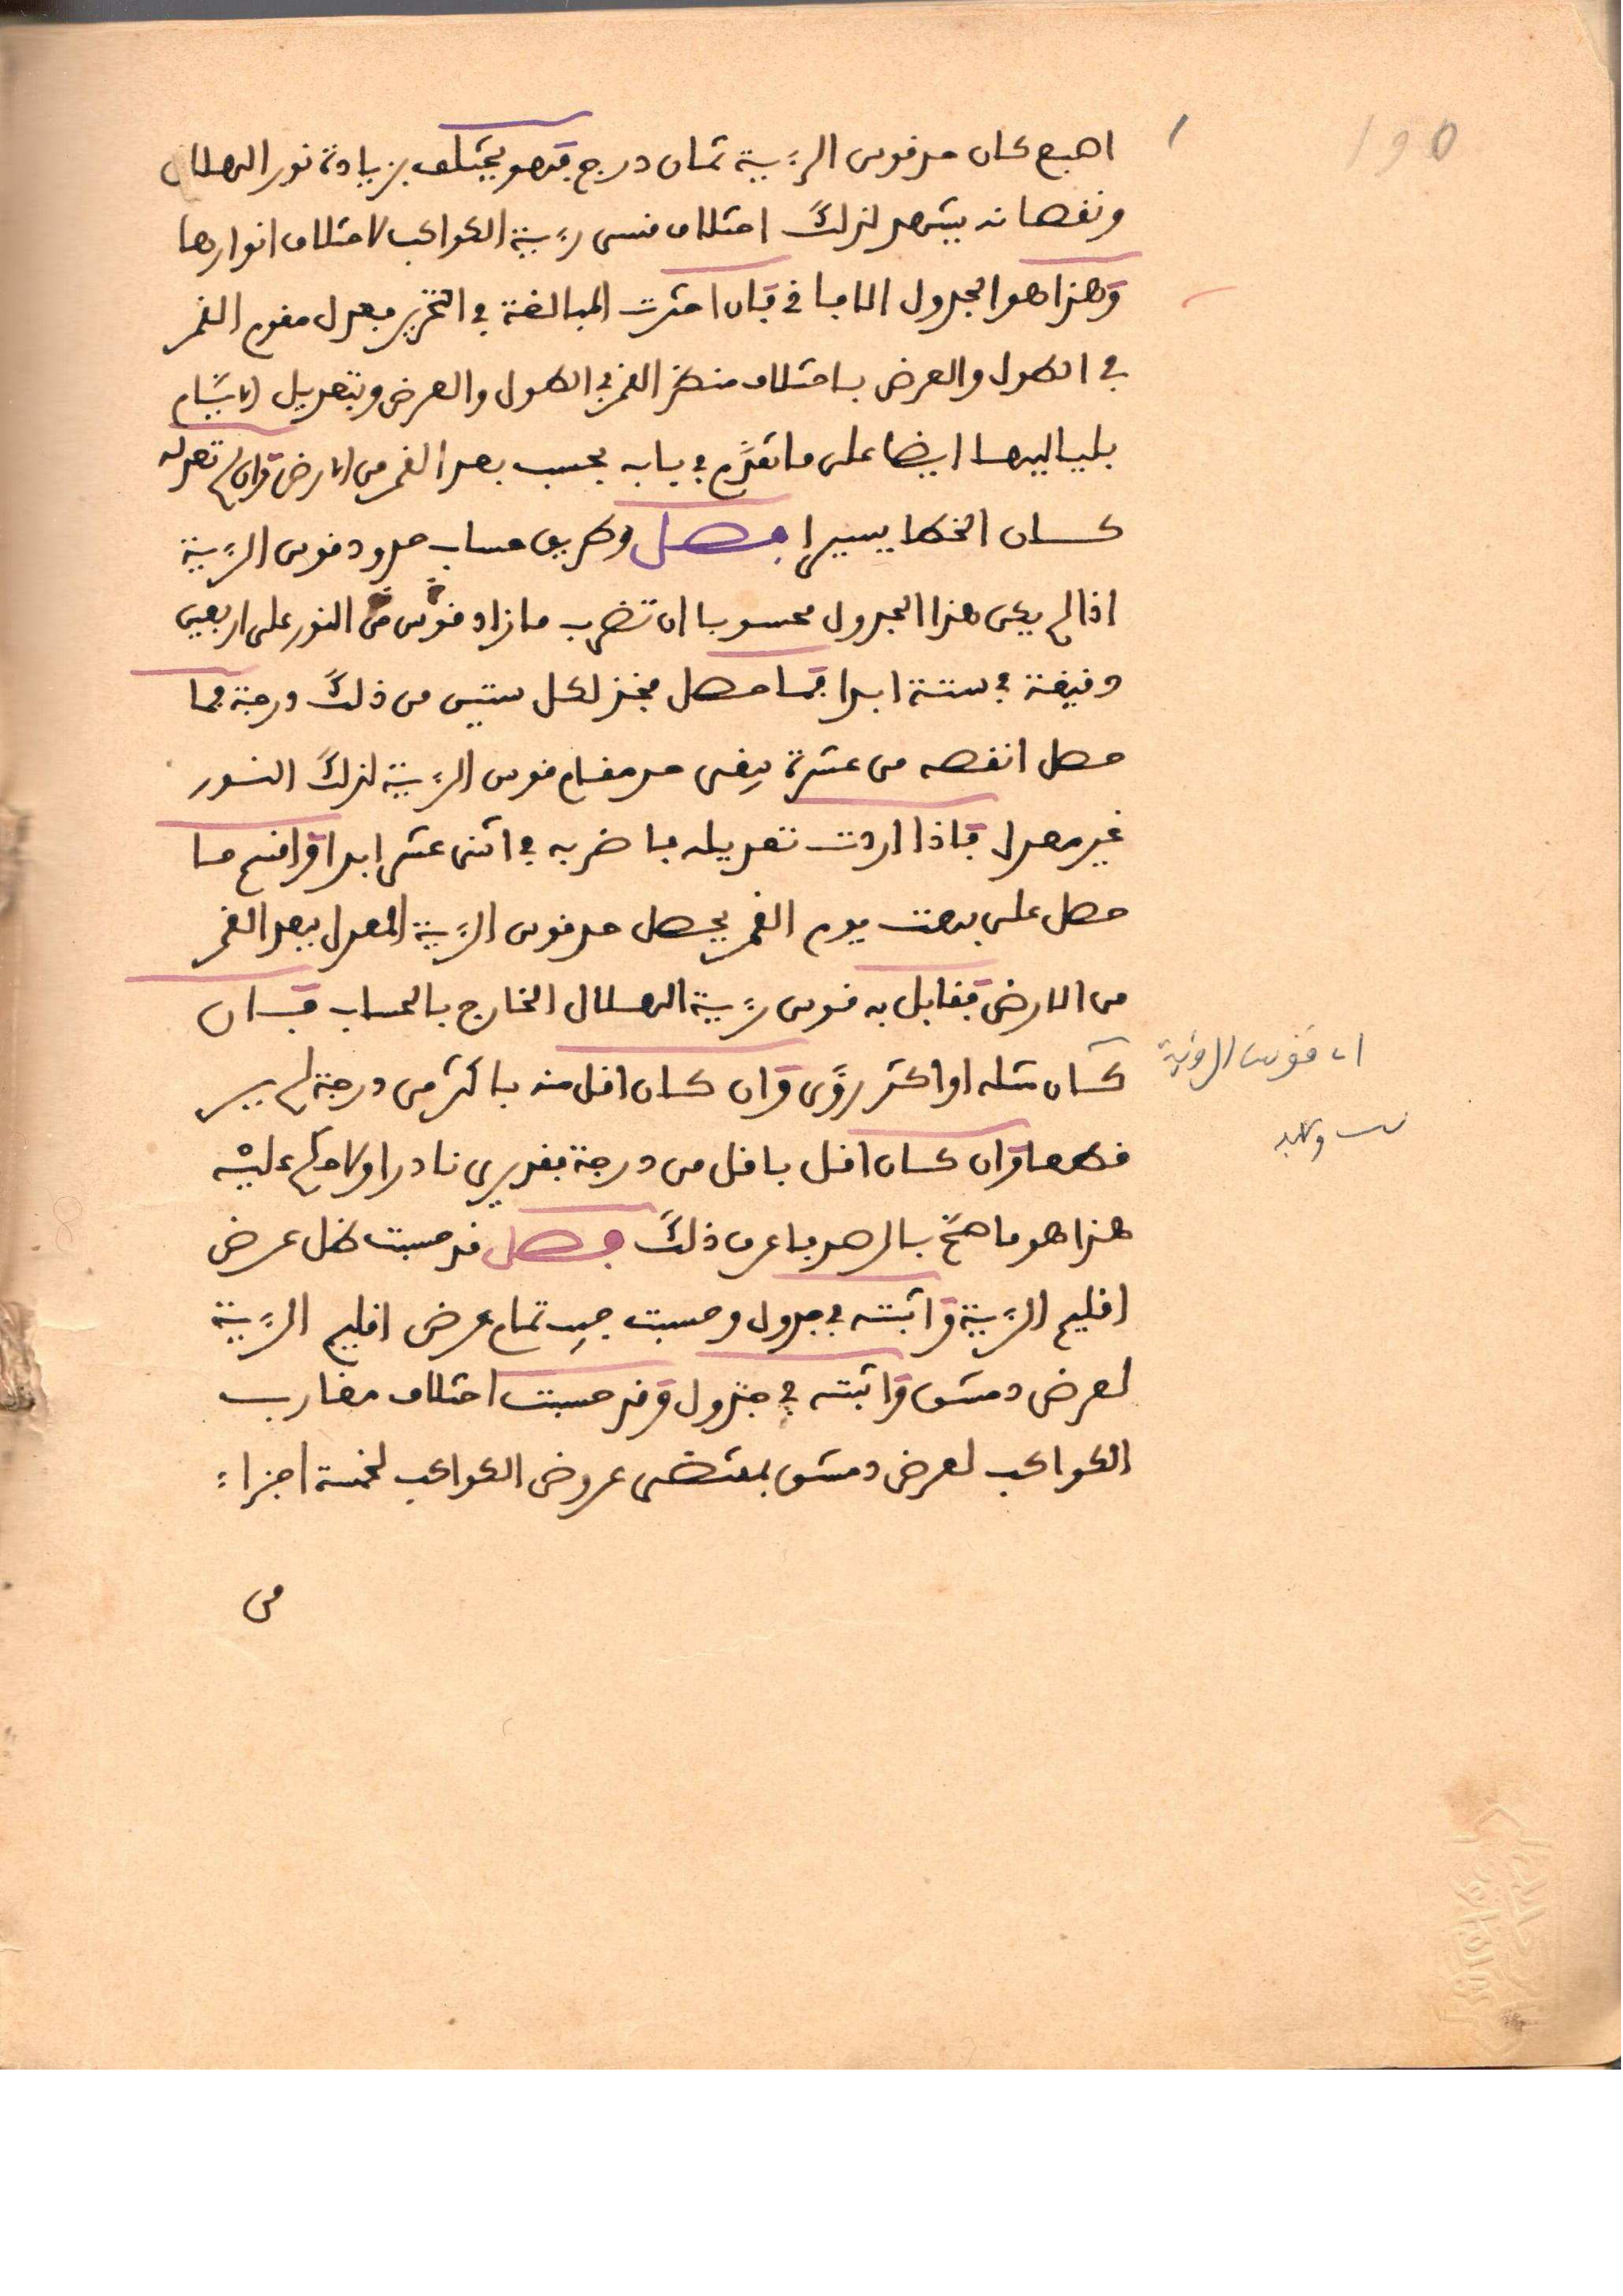 ١٥٥
اصبع كان حد قوس الرؤية ثمان درج فهو يختلف بزيادة نور الهلال
ونقصانه يشهد لذلك اختلاف قسي رؤية الكواكب لاختلاف انوارها
وهذا هو الجدول الاما في فان اخترت المبالغة في التحرير فعدل مقوم القمر
في الطول والعرض باختلاف منظر القمر في الطول والعرض وبتعديل الايام
بلياليها ايضا على ما تقدم في بابه بحسب بعد القمر من الارض وان لم تعدله
كان الخطا يسيرا فصل وطريق حساب حدود قوس الرؤية
اذا لم يكن هذا الجدول محسوبا ان تضرب ما زاد قوس من النور على اربعين
دقيقة في ستة ابدا فما حصل فخذ لكل ستين من ذلك درجة فما
حصل انقصه من عشرة يبقى حد مقام قوس الرؤية لذلك النور
غير معدل فاذا اردت تعديله فاضربه في اثنى عشر ابدا واقسم ما
حصل على بهت يوم القمر يحصل حد قوس الرؤية المعدل ببعد القمر
من الارض فقابل به قوس رؤية الهلال الخارج بالحساب فان
كان مثله او اكثر رؤي وان كان اقل منه باكثر من درجة لم ير
قطعا وان كان اقل باقل من درجة فقد يرى نادرا ولا حكم عليه
هذا هو ما صح بالرصد فاعرف ذلك فصل قد حسبت ظل عرض
اقليم الرؤية واثبته في جدول وحسبت جيب تمام عرض اقليم الرؤية
لعرض دمشق واثبته في جدول وقد حسبت اختلاف مغارب
الكواكب لعرض دمشق بمقتضى عروض الكواكب لخمسة اجزاء
من
اي قوس الرؤية